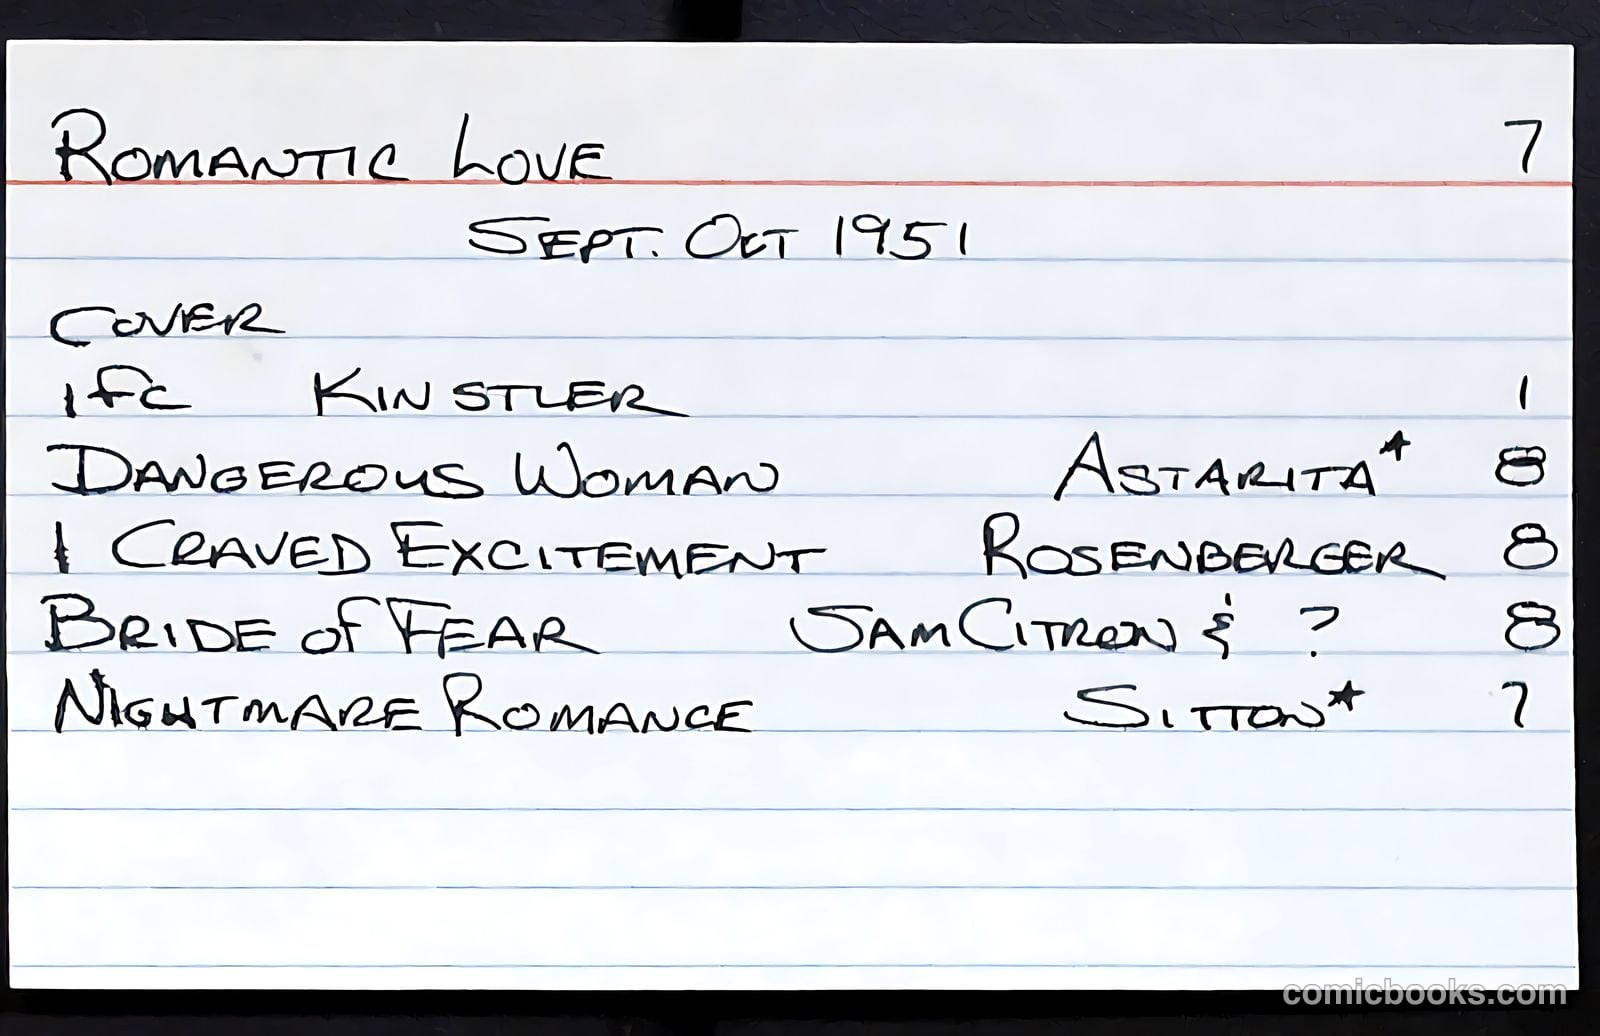 ROMANTIC LOVE 7
SEPT. OCT 1951
COVER
ifc KINSTLER 1
DANGEROUS WOMAN ASTARITA* 8
I CRAVED EXCITEMENT ROSENBERGER 8
BRIDE of FEAR SAM CITRON & ? 8
NIGHTMARE ROMANCE SITTON* 7
comicbooks.com